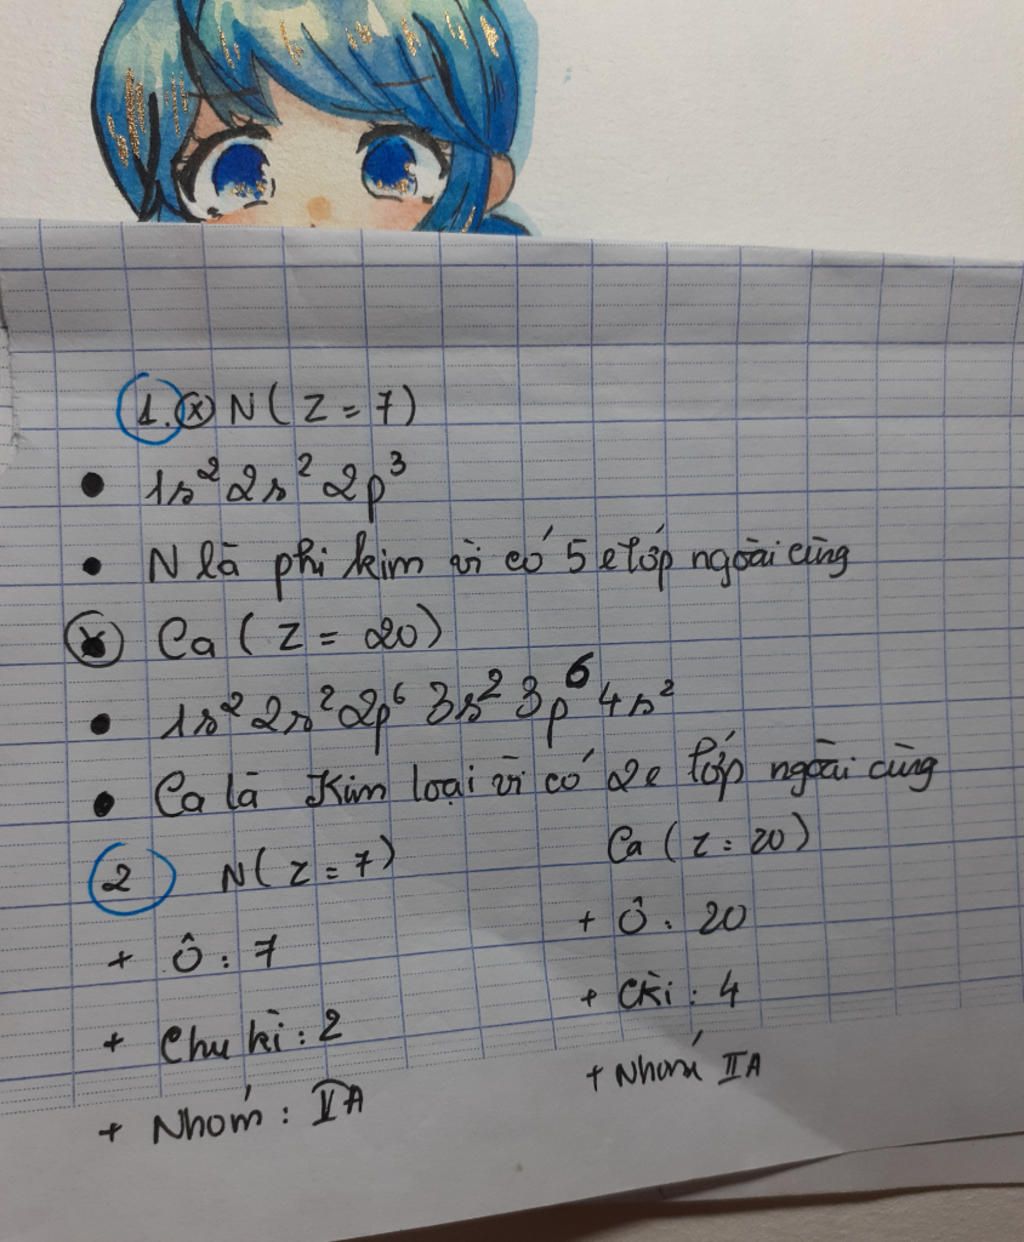 1. (x) N ( Z = 7 )
• 1s² 2s² 2p³
• N là phi kim vì có 5 e lớp ngoài cùng
(x) Ca ( Z = 20 )
• 1s² 2s² 2p⁶ 3s² 3p⁶ 4s²
• Ca là Kim loại vì có 2e lớp ngoài cùng
2 N ( Z = 7 )
+ Ô : 7
+ Chu kì : 2
+ Nhóm : VA
Ca ( Z = 20 )
+ Ô : 20
+ Ckì : 4
+ Nhóm IIA